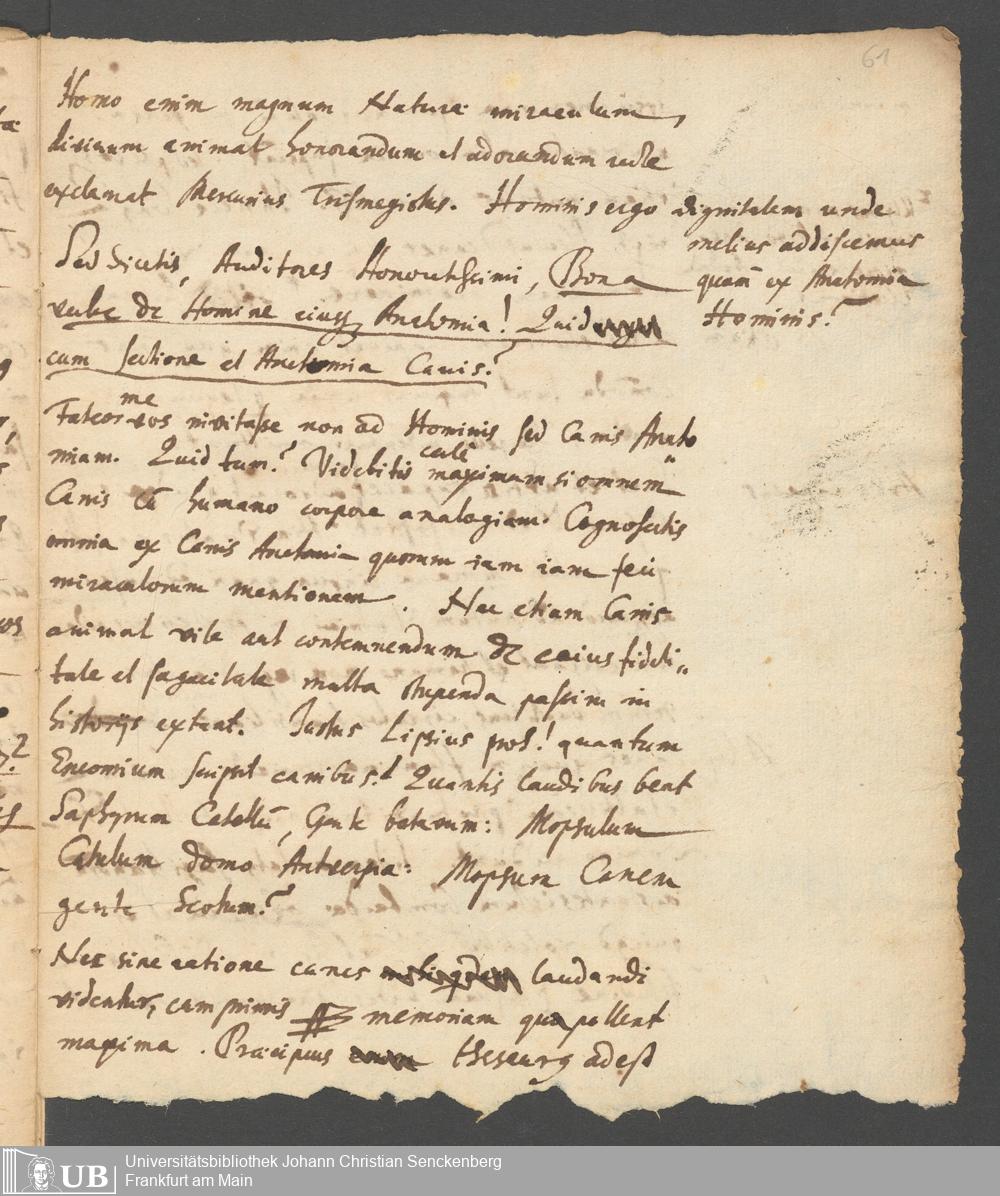 61
Homo enim magnum Naturæ miraculum,
divinum animal honorandum et adorandum recte
exclamat Mercurius Trismegistus. Hominis ergo dignitatem unde
melius addiscemus
quam̄ ex Anatomia
Hominis?
Sed dicetis, Auditores Honoratissimi, Bona
verba de Homine eiusq Anatomia! Quid
cum sectione et Anatomia Canis?
Fateor me vos invitasse non ad Hominis sed Canis Anato
miam. Quid tum? Videbitis maximam si omnem
Canis cū humano corpore analogiam. Cognoscetis
omnia ex Canis Anatomia quorum iam iam feci
miraculorum mentionem. Nec etiam Canis
animal vile aut contemnendum de eius fideli"
tate et sagacitate multa stupenda passim in
historijs extant. Justus Lipsius proh! quantum
Encomium scripsit canibus! Quantis laudibus beat
Saphyrum Catellū, Gente batavum: Mopsulum
Catulum domo Antverpia: Mopsum Canem
gente Scotum?
Nec sine ratione canes laudandi
videntur, cum primis memoriam qua pollent
maxima. Præcipuus thesaurq adest
Universitätsbibliothek Johann Christian Senckenberg
Frankfurt am Main
UB